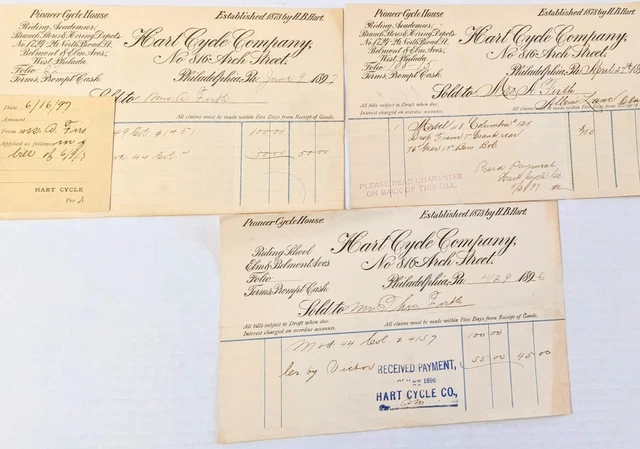 Pioneer Cycle House
Established 1878 by H.B. Hart.
Riding Academies:
Branch Stores & Hiring Depots
No 1724-26 North Broad St.
Belmont & Elm Aves.
West Philada.
Folio
Terms, Prompt Cash.
Hart Cycle Company,
No 816 Arch Street.
Philadelphia, Pa. June 9 189
Sold to Mrs A. Firth
All claims must be made within Five Days from Receipt of Goods.
49 Col # 1451 100 00
mod 44 Col 50 00 50 00
Date 6/16/97
Amount
From Mrs A. Firs
Applied as follows: in
HART CYCLE
Per
Pioneer Cycle House
Established 1878 by H.B. Hart.
Riding Academies:
Branch Stores & Hiring Depots
No 1724-26 North Broad St.
Belmont & Elm Aves.
West Philada.
Folio
Terms, Prompt Cash.
Hart Cycle Company,
No 816 Arch Street.
Philadelphia, Pa. April
Sold to Mrs A. Firth
Allens Lane
All bills subject to Draft when due.
Interest charged on overdue accounts.
All claims must be made within Five Days from Receipt of Goods.
1 Model Columbia
Drop Frame 7" Crank rear
Rec'd Payment
Hart Cycle Co
PLEASE READ GUARANTEE
ON BACK OF THIS BILL.
Pioneer Cycle House.
Established 1878 by H.B. Hart.
Riding School
Elm & Belmont Aves
Folio
Terms, Prompt Cash
Hart Cycle Company,
No 816 Arch Street.
Philadelphia, Pa. 10/29 1896
Sold to Mrs Firth
All bills subject to Draft when due.
Interest charged on overdue accounts.
All claims must be made within Five Days from Receipt of Goods.
Mod 44 Col # 4159 100 00
Cr. by Victor 55 00 45 00
RECEIVED PAYMENT,
1896
HART CYCLE CO.,